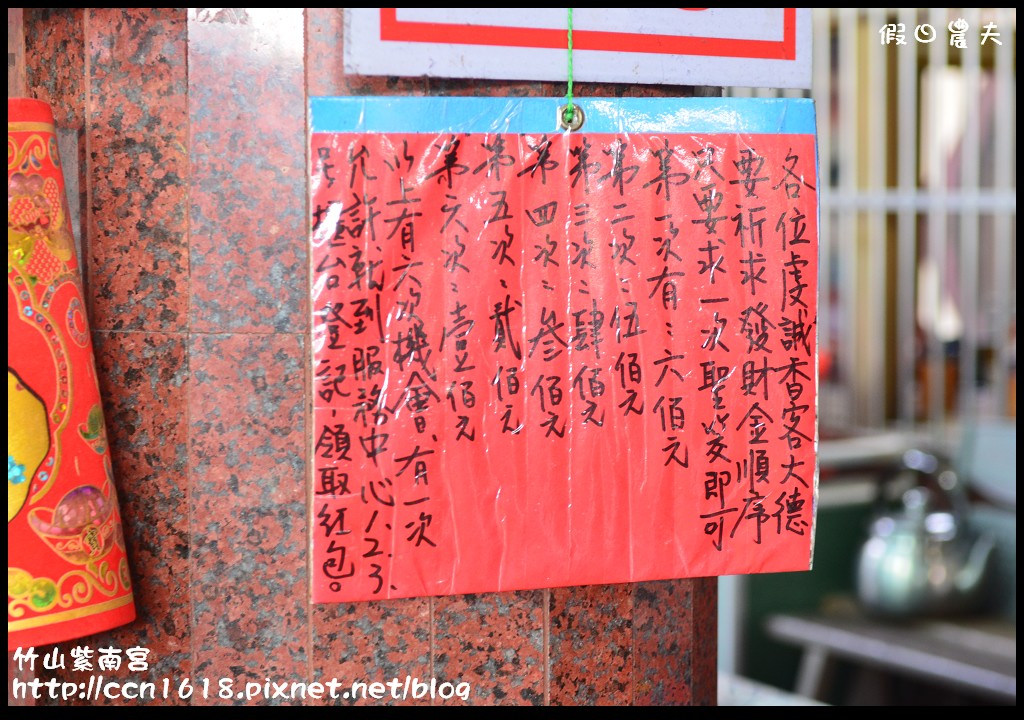 假日農夫
各位虔誠香客大德
要祈求發財金順序
次要求一次聖筊即可
第一次有：六佰元
第二次：伍佰元
第三次：肆佰元
第四次：叁佰元
第五次：貳佰元
第六次：壹佰元
以上有六次機會、有一次
允許、就到服務中心1.2.3.
號櫃台登記，領取紅包。
竹山紫南宮
http://ccn1618.pixnet.net/blog